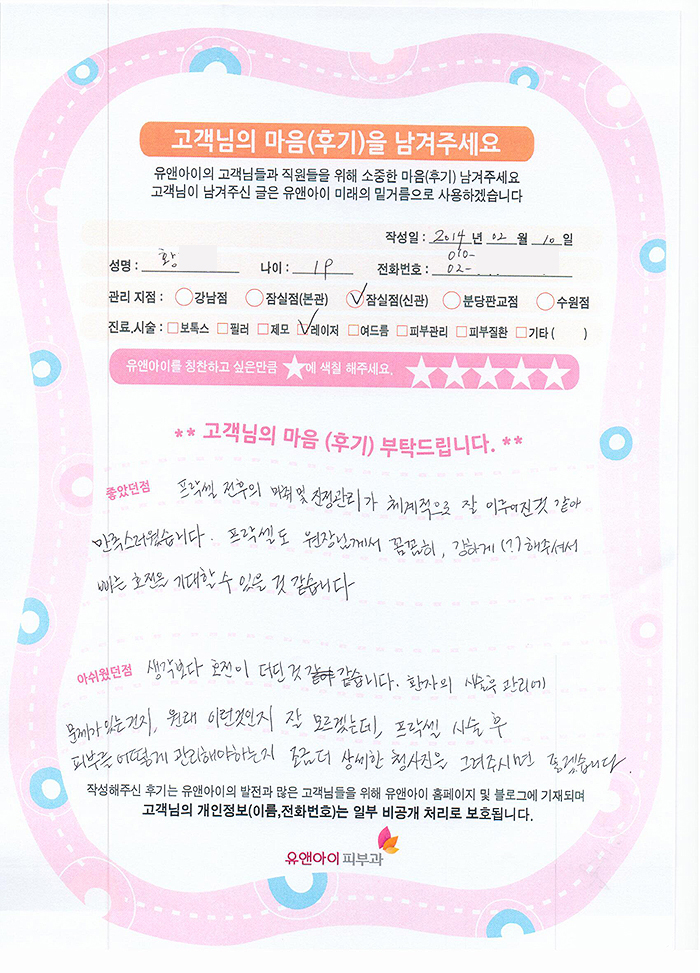 고객님의 마음(후기)을 남겨주세요
유앤아이의 고객님들과 직원들을 위해 소중한 마음(후기) 남겨주세요
고객님이 남겨주신 글은 유앤아이 미래의 밑거름으로 사용하겠습니다
작성일 : 2014 년 02 월 10 일
010-
성명 : 황 나이 : 19 전화번호 : 02- ...
관리 지점 : 강남점 잠실점(본관) 잠실점(신관) 분당판교점 수원점
진료,시술 : 보톡스 필러 제모 레이저 여드름 피부관리 피부질환 기타 ( )
유앤아이를 칭찬하고 싶은만큼 ★에 색칠 해주세요. ★★★★★
** 고객님의 마음 (후기) 부탁드립니다. **
좋았던점 프락셀 전후의 마취 및 진정관리가 체계적으로 잘 이루어진것 같아
만족스러웠습니다. 프락셀도 원장님께서 꼼꼼히, 강하게 (?) 해주셔서
빠른 호전을 기대할 수 있을 것 같습니다
아쉬웠던점 생각보다 호전이 더딘 것 같습니다. 환자의 시술후 관리에
문제가 있는건지, 원래 이런것인지 잘 모르겠는데, 프락셀 시술 후
피부를 어떻게 관리해야하는지 조금더 상세한 청사진을 그려주시면 좋겠습니다.
작성해주신 후기는 유앤아이의 발전과 많은 고객님들을 위해 유앤아이 홈페이지 및 블로그에 기재되며
고객님의 개인정보(이름,전화번호)는 일부 비공개 처리로 보호됩니다.
유앤아이 피부과